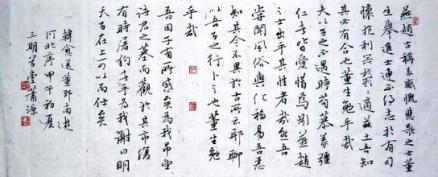 燕趙古稱多感慨悲歌之士董
生舉進士連不得志於有司
懷抱利器鬱鬱適茲土吾知
其必有合也董生勉乎哉
夫以子之不遇時苟慕義彊
仁者皆愛惜焉矧燕趙
之士出乎其性者哉然吾
嘗聞風俗與化移易吾惡
知其今不異於古所云耶聊
以吾子之行卜之也董生勉
乎哉
吾因子有所感矣為我弔望
諸君之墓而觀於其市復
有昔時屠狗者乎為我謝曰明
天子在上可以出而仕矣
韓愈送董邵南遊
河北序甲午初夏
三明蕭源